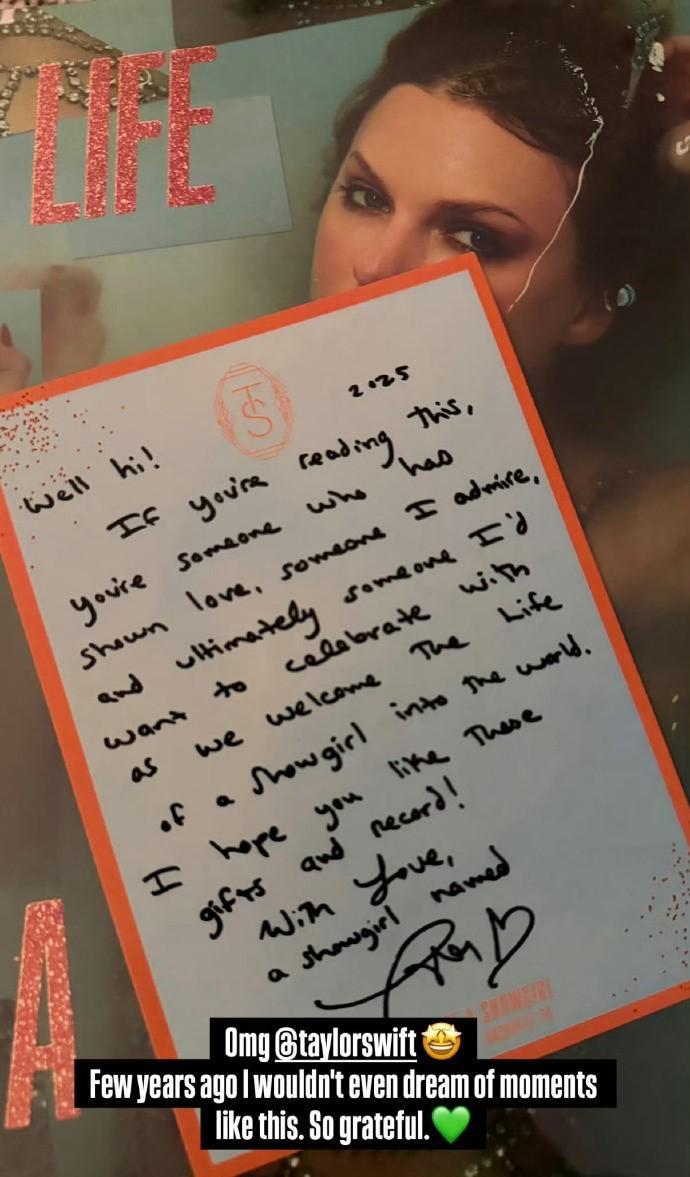 LIFE
TS
2025
Well hi!
If you're reading this,
you're someone who has
shown love, someone I admire,
and ultimately someone I'd
want to celebrate with
as we welcome The Life
of a Showgirl into the world.
I hope you like these
gifts and record!
With Love,
a showgirl named
A
SHOWGIRL
Omg @taylorswift 🤩
Few years ago I wouldn't even dream of moments
like this. So grateful.💚